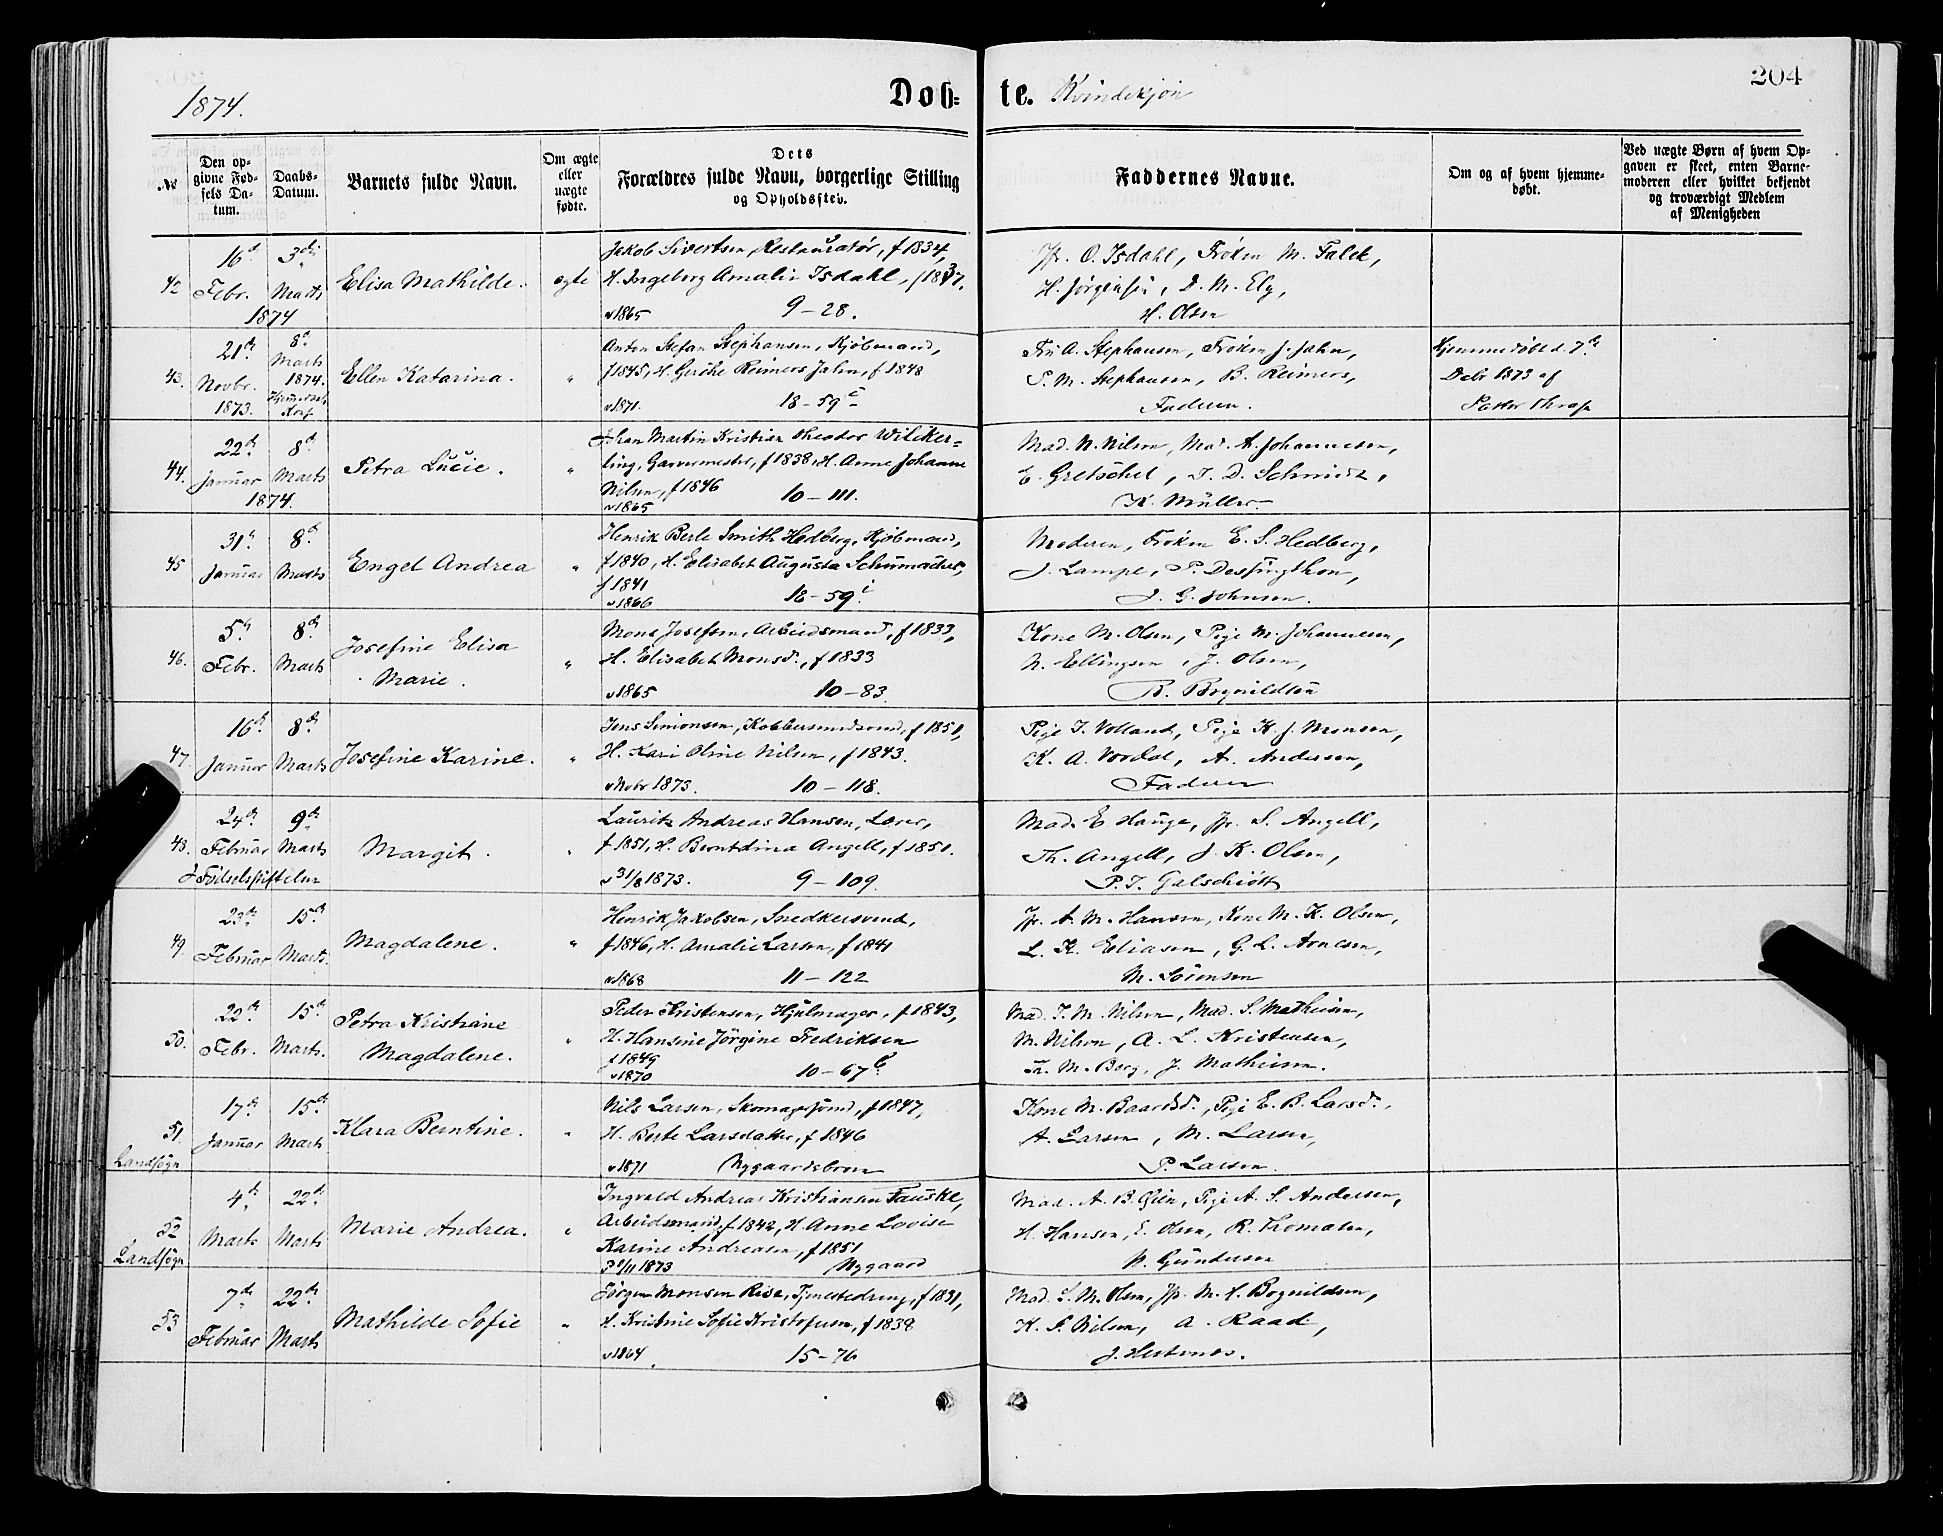 1874.
Døb-
te. Kvindekjøn
204
№
Den opgivne Fødsels Datum.
Daabs-Datum.
Barnets fulde Navn.
Om ægte eller uægte fødte.
Dets Forældres fulde Navn, borgerlige Stilling og Opholdssted.
Faddernes Navne.
Om og af hvem hjemmedøbt.
Ved uægte Børn af hvem Opgaven er skeet, enten Barnemoderen eller hvilket bekjendt og troværdigt Medlem af Menigheden
42
16de Febr. 1874
3die Marts
Elisa Mathilde.
egte
Jakob Sivertsen, Restauratør, f 1834,
H. Ingeborg Amalie Isdahl, f 1837.
v 1865 9-28.
Jfr. O. Isdahl, Frøken M. Falck,
H. Jörgensen, D. M. Ely,
H. Olsen
43.
21de Novbr. 1873.
8de Marts 1874.
Ellen Katarina.
"
Anton Stefan Stephansen, Kjöbmand,
f 1845, H. Geröhe Reimers Jahn, f 1848
v 1871. 18-59 c
Fru A. Stephansen, Fröken J. Jahn,
P. M. Stephansen, B. Reimers,
Faderen.
Hjemmedöbt d. 7de
Debr 1873 af
Pastor Thrap
44.
22de Januar 1874.
8de Marts
Petra Lucie.
"
Johan Martin Kristian Theodor Wilcker-
ling, Garvermester, f 1838, H. Anne Johanne
Nilsen, f 1846
v 1865 10-111.
Mad. N. Nilsen, Mad. A. Johannesen,
E. Gretschel, T. D. Schmidt,
K. Müller.
45
31te Januar
8de Marts
Engel Andrea
"
Henrik Berle Smith Hedberg, Kjöbmand,
f 1840, H. Elisabet Augusta Schumacher,
f 1841
v 1866 18-59 i
Moderen, Fröken E. S. Hedberg,
J. Lampe, P. Dessingthon,
J. G. Johnsen.
46.
5te Febr.
8de Marts
Josefine Elisa
Marie.
"
Mons Josefsen, Arbeidsmand, f 1833,
H. Elisabet Monsd., f 1833
v 1865 10-83.
Kone M. Olsen, Pige M. Johannesen,
N. Ellingsen, J. Olsen,
B. Brynildsen
47
16de Januar
8de Marts
Josefine Karine.
"
Jens Simonsen, Kobbersmedsvend, f 1851,
H. Kari Oline Nilsen, f 1843.
v Novbr 1873. 10-118.
Pige I. Volland, Pige K. J. Monsen,
K. A. Vordal, A. Andersen,
Faderen
48.
24de Februar
9de Marts
I Födselsstiftelsen
Margit.
"
Lauritz Andreas Hansen, Lærer,
f 1851, H. Berntdina Angell, f 1851.
v 31/8 1873. 9-109.
Mad. E. Hauge, Jfr. S. Angell,
Th. Angell, J. K. Olsen,
P. I. Galschiött
49.
23de Februar
15de Marts.
Magdalene.
"
Henrik Jakobsen, Snedkersvend,
f 1846, H. Amalie Larsen, f 1841
v 1868 11-122
Jfr. A. M. Hansen, Kone M. K. Olsen,
L. K. Eliasen, G. L. Arnesen,
M. Sörensen
50.
22de Febr.
15de Marts.
Petra Kristiane
Magdalene.
"
Peder Kristensen, Hjulmager, f 1843,
H. Hansine Jörgine Fredriksen
f 1849
v 1870 10-67 b
Mad. T. M. Nilsen, Mad. S. Mathiesen,
M. Nilson, A. L. Kristensen,
Th. M. Berg, J. Mathiesen.
51.
Landsogn
17de Januar
15de Marts
Klara Berntine.
"
Nils Larsen, Skomagersvend, f 1847,
H. Berte Larsdatter, f 1846
v 1871 Nygaardsbroen
Kone M. Baardsd., Pige E. B. Larsd.,
A. Larsen, M. Larsen,
P. Larsen.
52
Landsogn
4de Marts
22de Marts
Marie Andrea.
"
Ingvald Andreas Kristiansen Fauske,
Arbeidsmand, f 1842, H. Anne Lovise
Karine Andreasen, f 1851
1873 Nygaard
Mad. A. B. Grön, Pige A. S. Andersen,
H. Hansen, E. Olsen, R. Thomasen,
N. Gundersen
53
7de Februar
22de Marts
Mathilde Sofie
"
Jörgen Monsen Rise, Tjenestedreng, f 1831,
H. Kristine Sofie Kristofersen, f 1839
v 1864 15-76
Mad. S. M. Olsen, Jfr. M. N. Brynildsen,
K. P. Nilsen, A. Raad,
J. Hestenes.